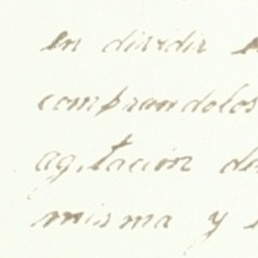 en dividir
comprandolos
agitacion de
misma y